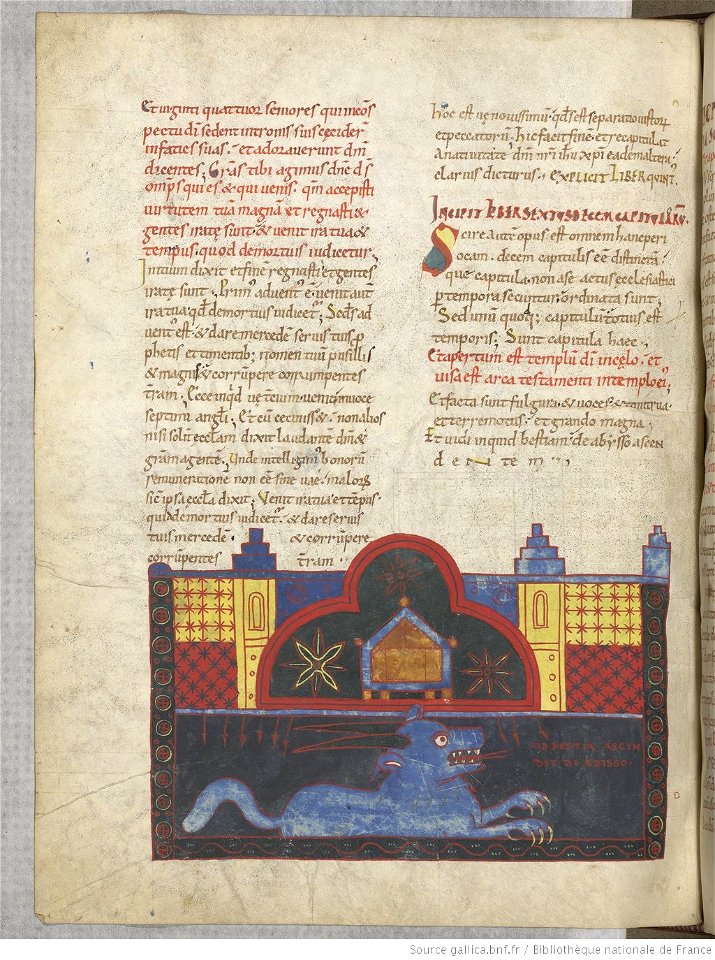 Et viginti quattuor seniores qui incōs
pectu dī sedent in tronis suis cecider̄
in facies suas · et adoraverunt dn̄m
dicentes; Grās tibi agimus dn̄e d̄s
omp̄s qui es & qui venis · qm̄ accepisti
virtutem tuā magnā et regnasti &
gentes iratę sunt · & venit ira tua &
tempus · quo de mortuis iudicetur ·
Initium dixit et fine regnasti et gentes
iratę sunt · Prim' advent' ē · venit aūt
ira tua
vent' est · & dare mercedē servis tuis p̱ro
phetis et timentib; nomen tuū pusillis
& magnis & corrūpere corrumpentes
trām
septimi angl̄i · Et cū
nisi solā ęccl̄am dixit laudante dm̄ &
grām agentē · Unde intelligim' bonorū
remunerationē non eē sine vae · malorū
sic ipsa ęccl̄a dixit · Venit ira tua et tēpus
quo de mortuis iudicet̄ · & dare servis
tuis mercedē · & corrūpere
corrūpentes trām ·
Hoc est
et peccatorū · hic facit finē · et recapitulat
a nativitate dn̄i nr̄i ih̄u xp̄i eadem alteri ·
clarius dicturus · EXPLICIT LIBER QUINT'.
INCIPIT LIBER SEXTUS DECEM CAPITULARŪ
Scire autē opus est omnem hanc peri
ocam · decem capitulis eē distinctā
que capitula · non a se actus ęcclesiastici
per tempora secuntur · ordinata sunt ·
Sed unū quoq; capitulū totius est
temporis; Sunt capitula haec ·
Et apertum est templū dī in cęlo · et
visa est arca testamenti in templo ei'
Et facta sunt fulgura · & voces · & tonitrua
et terremotus · et grando magna ·
Et vidi inquid bestiam · de abysso ascen
dentem
UBI BESTIA ASCEN
DIT DE ABISSO ·
Source gallica.bnf.fr / Bibliothèque nationale de France